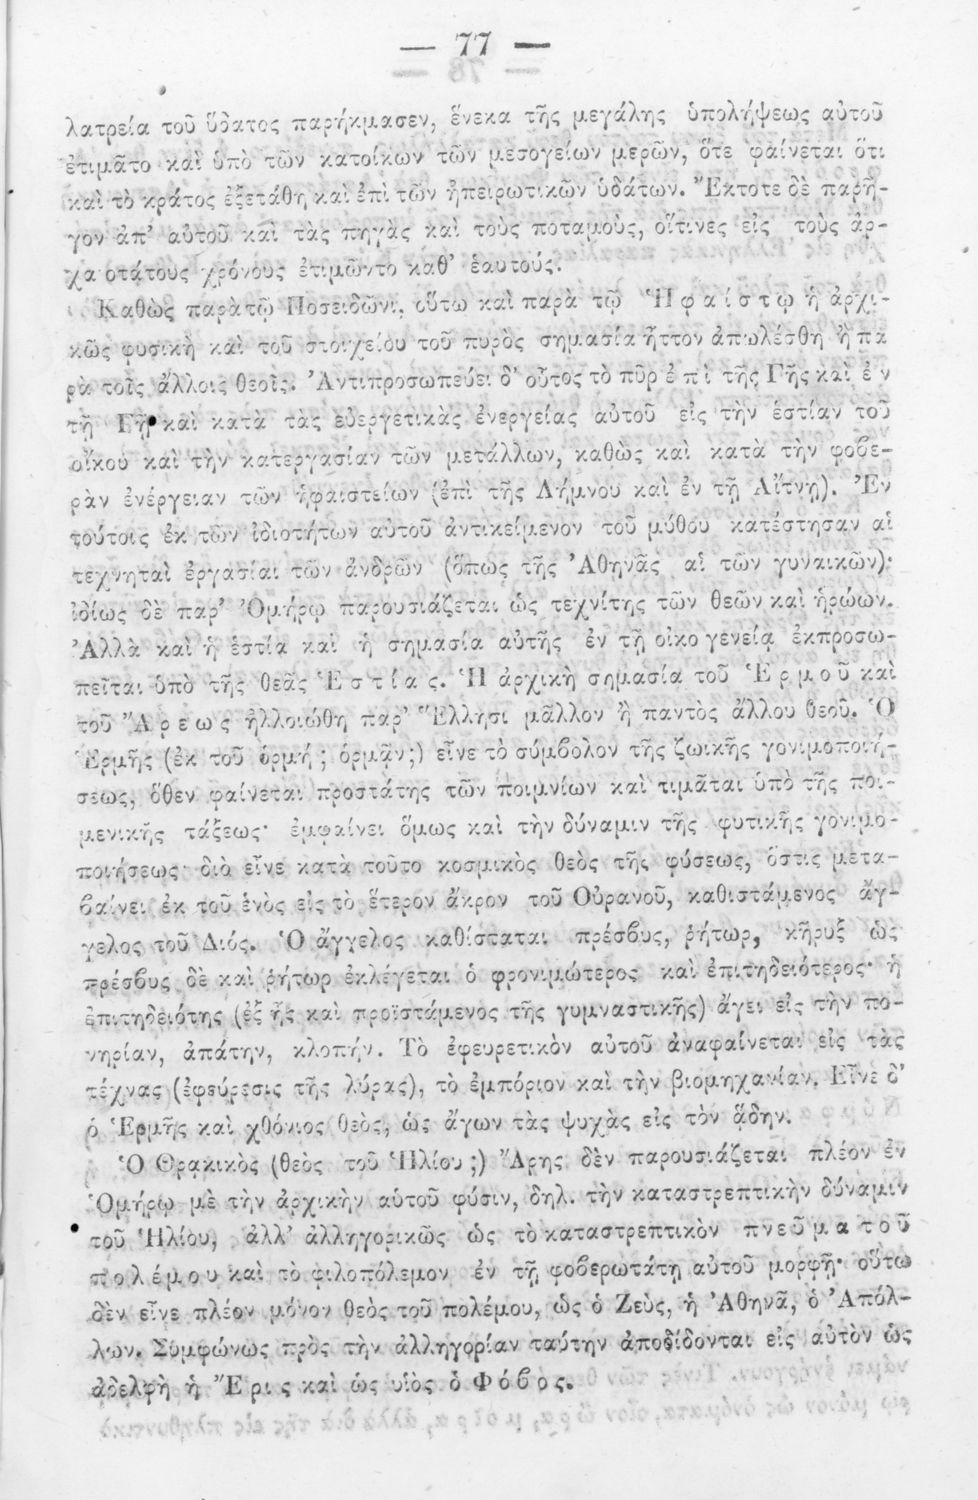 — 77 —
λατρεία τοῦ ὕδατος παρήκμασεν, ἕνεκα τῆς μεγάλης ὑπολήψεως αὐτοῦ
ἐτιμᾶτο καὶ ὑπὸ τῶν κατοίκων τῶν μεσογείων μερῶν, ὅτε φαίνεται ὅτι
καὶ τὸ κράτος ἐξετάθη καὶ ἐπὶ τῶν ἠπειρωτικῶν ὑδάτων. Ἔκτοτε δὲ παρῆ-
γον ἀπ' αὐτοῦ καὶ τὰς πηγὰς καὶ τοὺς ποταμοὺς, οἵτινες εἰς τοὺς ἀρ-
χα οτάτους χρόνους ἐτιμῶντο καθ' ἑαυτούς.
Καθὼς παρὰ τῷ Ποσειδῶνι, οὕτω καὶ παρὰ τῷ Ἡφαίστῳ ἡ ἀρχι-
κῶς φυσικὴ καὶ τοῦ στοιχείου τοῦ πυρὸς σημασία ἧττον ἀπωλέσθη ἢ πα
ρὰ τοῖς ἄλλοις θεοῖς. Ἀντιπροσωπεύει δ' οὗτος τὸ πῦρ ἐπὶ τῆς Γῆς καὶ ἐν
τῇ Γῇ καὶ κατὰ τὰς εὐεργετικὰς ἐνεργείας αὐτοῦ εἰς τὴν ἑστίαν τοῦ
οἴκου καὶ τὴν κατεργασίαν τῶν μετάλλων, καθὼς καὶ κατὰ τὴν φοβε-
ρὰν ἐνέργειαν τῶν ἡφαιστείων (ἐπὶ τῆς Λήμνου καὶ ἐν τῇ Αἴτνῃ). Ἐν
τούτοις ἐκ τῶν ἰδιοτήτων αὐτοῦ ἀντικείμενον τοῦ μύθου κατέστησαν αἱ
τεχνηταὶ ἐργασίαι τῶν ἀνδρῶν (ὅπως τῆς Ἀθηνᾶς αἱ τῶν γυναικῶν)·
ἰδίως δὲ παρ' Ὁμήρῳ παρουσιάζεται ὡς τεχνίτης τῶν θεῶν καὶ ἡρώων.
Ἀλλὰ καὶ ἡ ἑστία καὶ ἡ σημασία αὐτῆς ἐν τῇ οἰκογενείᾳ ἐκπροσω-
πεῖται ὑπὸ τῆς θεᾶς Ἑστίας. Ἡ ἀρχικὴ σημασία τοῦ Ἑρμοῦ καὶ
τοῦ Ἄρεως ἠλλοιώθη παρ' Ἕλλησι μᾶλλον ἢ παντὸς ἄλλου θεοῦ. Ὁ
Ἑρμῆς (ἐκ τοῦ ὁρμή; ὁρμᾷν;) εἶνε τὸ σύμβολον τῆς ζωικῆς γονιμοποιή-
σεως, ὅθεν φαίνεται προστάτης τῶν ποιμνίων καὶ τιμᾶται ὑπὸ τῆς ποι-
μενικῆς τάξεως· ἐμφαίνει ὅμως καὶ τὴν δύναμιν τῆς φυτικῆς γονιμο-
ποιήσεως· διὸ εἶνε κατὰ τοῦτο κοσμικὸς θεὸς τῆς φύσεως, ὅστις μετα-
βαίνει ἐκ τοῦ ἑνὸς εἰς τὸ ἕτερον ἄκρον τοῦ Οὐρανοῦ, καθιστάμενος ἄγ-
γελος τοῦ Διός. Ὁ ἄγγελος καθίσταται πρέσβυς, ῥήτωρ, κῆρυξ ὡς
πρέσβυς δὲ καὶ ῥήτωρ ἐκλέγεται ὁ φρονιμώτερος καὶ ἐπιτηδειότερος· ἡ
ἐπιτηδειότης (ἐξ ἧς καὶ προϊστάμενος τῆς γυμναστικῆς) ἄγει εἰς τὴν πο-
νηρίαν, ἀπάτην, κλοπήν. Τὸ ἐφευρετικὸν αὐτοῦ ἀναφαίνεται εἰς τὰς
τέχνας (ἐφεύρεσις τῆς λύρας), τὸ ἐμπόριον καὶ τὴν βιομηχανίαν. Εἶνε δ'
ὁ Ἑρμῆς καὶ χθόνιος θεὸς, ὡς ἄγων τὰς ψυχὰς εἰς τὸν ᾅδην.
Ὁ Θρακικὸς (θεὸς τοῦ Ἡλίου;) Ἄρης δὲν παρουσιάζεται πλέον ἐν
Ὁμήρῳ μὲ τὴν ἀρχικὴν αὑτοῦ φύσιν, δηλ. τὴν καταστρεπτικὴν δύναμιν
τοῦ Ἡλίου, ἀλλ' ἀλληγορικῶς ὡς τὸ καταστρεπτικὸν πνεῦμα τοῦ
πολέμου καὶ τὸ φιλοπόλεμον ἐν τῇ φοβερωτάτῃ αὐτοῦ μορφῇ· οὕτω
δὲν εἶνε πλέον μόνον θεὸς τοῦ πολέμου, ὡς ὁ Ζεὺς, ἡ Ἀθηνᾶ, ὁ Ἀπόλ-
λων. Συμφώνως πρὸς τὴν ἀλληγορίαν ταύτην ἀποδίδονται εἰς αὐτὸν ὡς
ἀδελφὴ ἡ Ἔρις καὶ ὡς υἱὸς ὁ Φόβος.